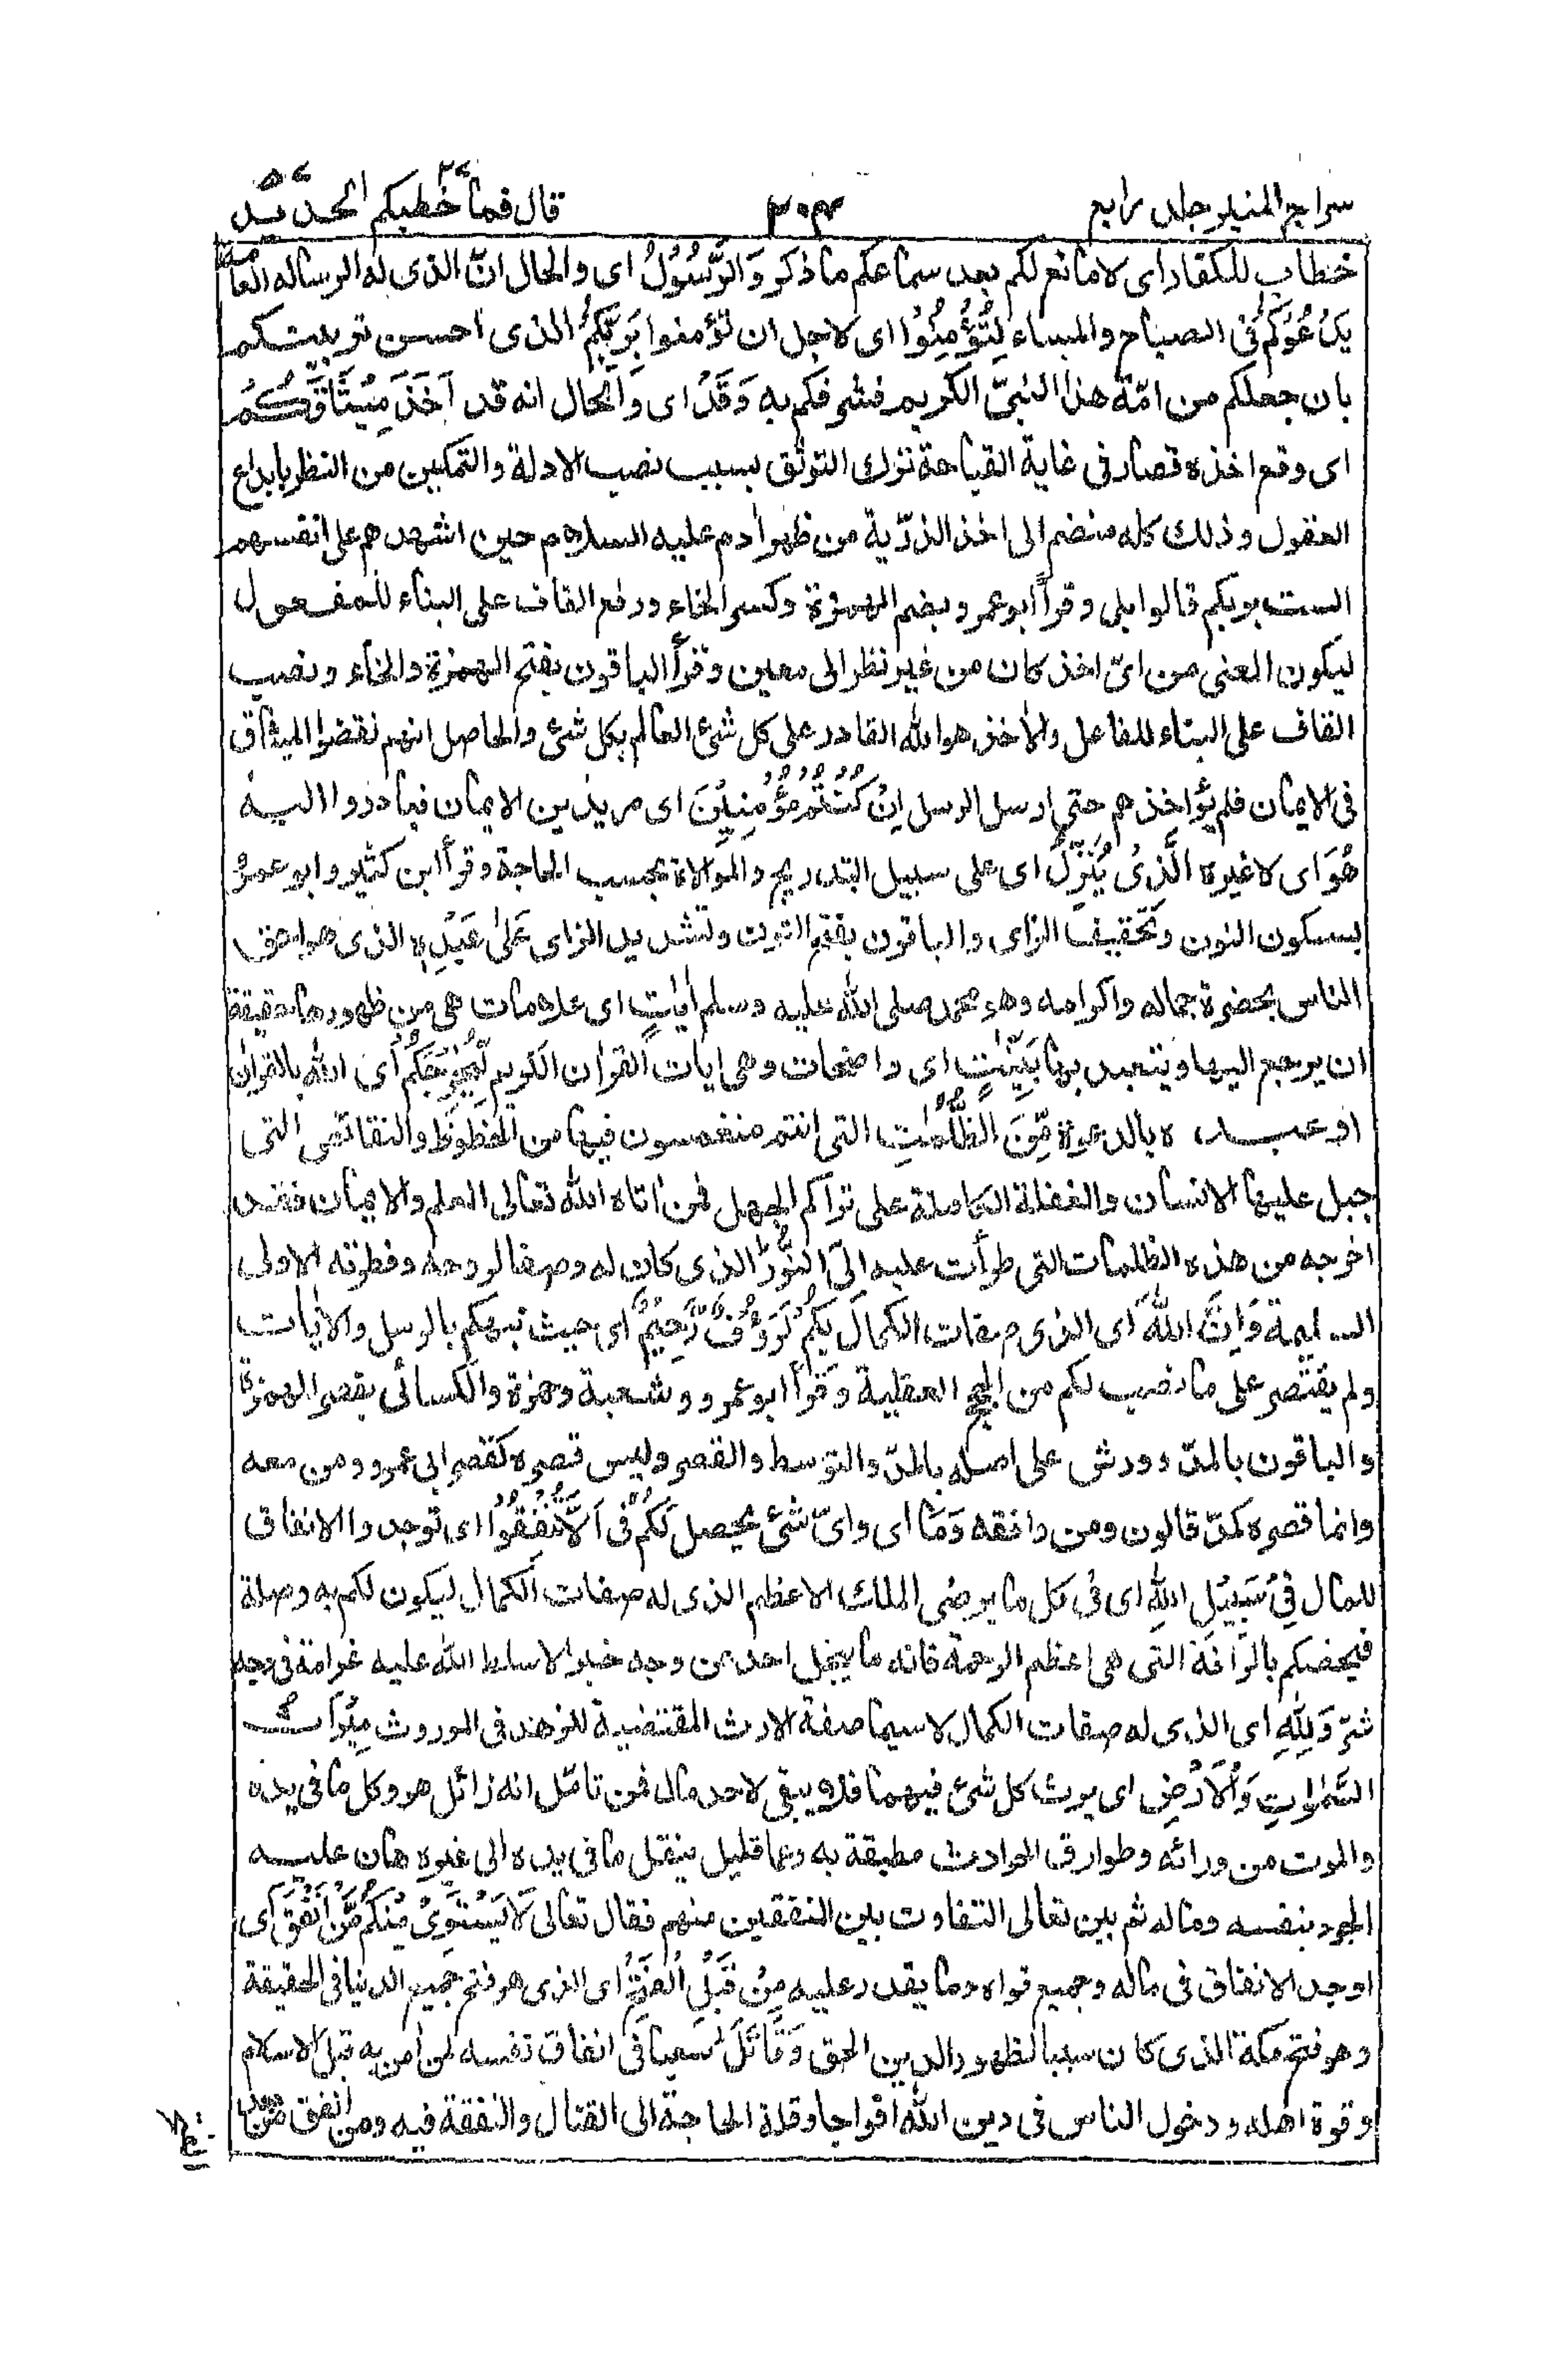 سراج المنير جلد رابع ٣٠٣ قال فما خطبكم ٢٧ الحديد ٥٧
خطاب للكفار اى لا مانع لكم بعد سماعكم ما ذكر وَالرَّسُوْلُ اى والحال انّ الذى له الرسالة العامة
يَدْعُوْكُمْ فى الصباح والمساء لِتُؤْمِنُوْا اى لاجل ان تؤمنوا بِرَبِّكُمْ الذى احسن تربيتكم
بان جعلكم من امّة هذا النبىّ الكريم فشرفكم به وَقَدْ اى والحال انه قد اَخَذَ مِيْثَاقَكُمْ
اى وقع اخذه فصار فى غاية القباحة ترك التوثق بسبب نصب الادلة والتمكين من النظر بابداع
العقول وذلك كله منضم الى اخذ الذرّية من ظهر اٰدم عليه السلام حين اشهدهم على انفسهم
الست بربكم قالوا بلى وقرأ ابوعمرو بضم الهمزة وكسر الخاء ورفع القاف على البناء للمفعول
ليكون المعنى من اىّ اخذ كان من غير نظر الى معين وقرأ الباقون بفتح الهمزة والخاء ونصب
القاف على البناء للفاعل والاٰخذ هو الله القادر على كل شئ العالم بكل شئ والحاصل انهم نقضوا الميثاق
فى الايمان فلم يؤاخذهم حتى ارسل الرسل اِنْ كُنْتُمْ مُّؤْمِنِيْنَ اى مريدين الايمان فبادروا اليه
هُوَ اى لا غيره الَّذِىْ يُنَزِّلُ اى على سبيل التدريج والموالاة بحسب الحاجة وقرأ ابن كثير وابو عمرو
بسكون النون وتخفيف الزاى والباقون بفتح النون وتشديد الزاى عَلٰى عَبْدِهٖ الذى هو احق
الناس بحضرة جماله واكرامه وهو محمد صلى الله عليه وسلم اٰيٰتٍ اى علامات هى من ظهورها حقيقة
ان يرجع اليها ويتعبد بها بَيِّنٰتٍ اى واضحات وهى اٰيات القراٰن الكريم لِّيُخْرِجَكُمْ اى الله بالقراٰن
او عبده بالدعوة مِّنَ الظُّلُمٰتِ التى انتم منغمسون فيها من الحظوظ والنقائص التى
جبل عليها الانسان والغفلة الحاملة على تراكم الجهل فمن اٰتاه الله تعالى العلم والايمان فقد
اخرجه من هذه الظلمات التى طرأت عليه اِلَى النُّوْرِ الذى كان له وصفا لروحه وفطرته الاولى
السليمة وَاِنَّ اللّٰهَ اى الذى صفات الكمال بِكُمْ لَرَءُوْفٌ رَّحِيْمٌ اى حيث نبهكم بالرسل والاٰيات
ولم يقتصر على ما نصب لكم من الحجج العقلية وقرأ ابو عمرو وشعبة وحمزة والكسائى بقصر الهمزة
والباقون بالمدّ وورش على اصله بالمدّ والتوسط والقصر وليس قصره كقصر ابى عمرو ومن معه
وانما قصره كمدّ قالون ومن وافقه وَمَا اى واىّ شئ يحصل لَكُمْ فى اَلَّا تُنْفِقُوْا اى توجدوا الانفاق
للمال فِىْ سَبِيْلِ اللّٰهِ اى فى كل ما يرضى الملك الاعظم الذى له صفات الكمال ليكون لكم به وصلة
فيخصكم بالرأفة التى هى اعظم الرحمة فانه ما يبخل احد عن وجه خير الا سلط الله عليه غرامة فى وجه
شرّ وَلِلّٰهِ اى الذى له صفات الكمال لا سيما صفة الارث المقتضية للزهد فى الموروث مِيْرَاثُ
السَّمٰوٰتِ وَالْاَرْضِ اى يرث كل شئ فيهما فلا يبقى لاحد مال فمن تامّل انه زائل هو وكل ما فى يده
والموت من ورائه وطوارق الحوادث مطبقة به وعما قليل ينقل ما فى يده الى غيره هان عليه
الجود بنفسه وماله ثم بين تعالى التفاوت بين المنفقين منهم فقال تعالى لَا يَسْتَوِىْ مِنْكُمْ مَّنْ اَنْفَقَ اى
اوجد الانفاق فى ماله وجميع قواه وما يقدر عليه مِنْ قَبْلِ الْفَتْحِ اى الذى هو فتح جميع الدنيا فى الحقيقة
وهو فتح مكة الذى كان سببا لظهور الدين الحق وَقَاتَلَ سعيا فى انفاق نفسه لمن اٰمن به قبل الاسلام
وقوة اهله ودخول الناس فى دين الله افواجا وقلة الحاجة الى القتال والنفقة فيه ومن انفق من